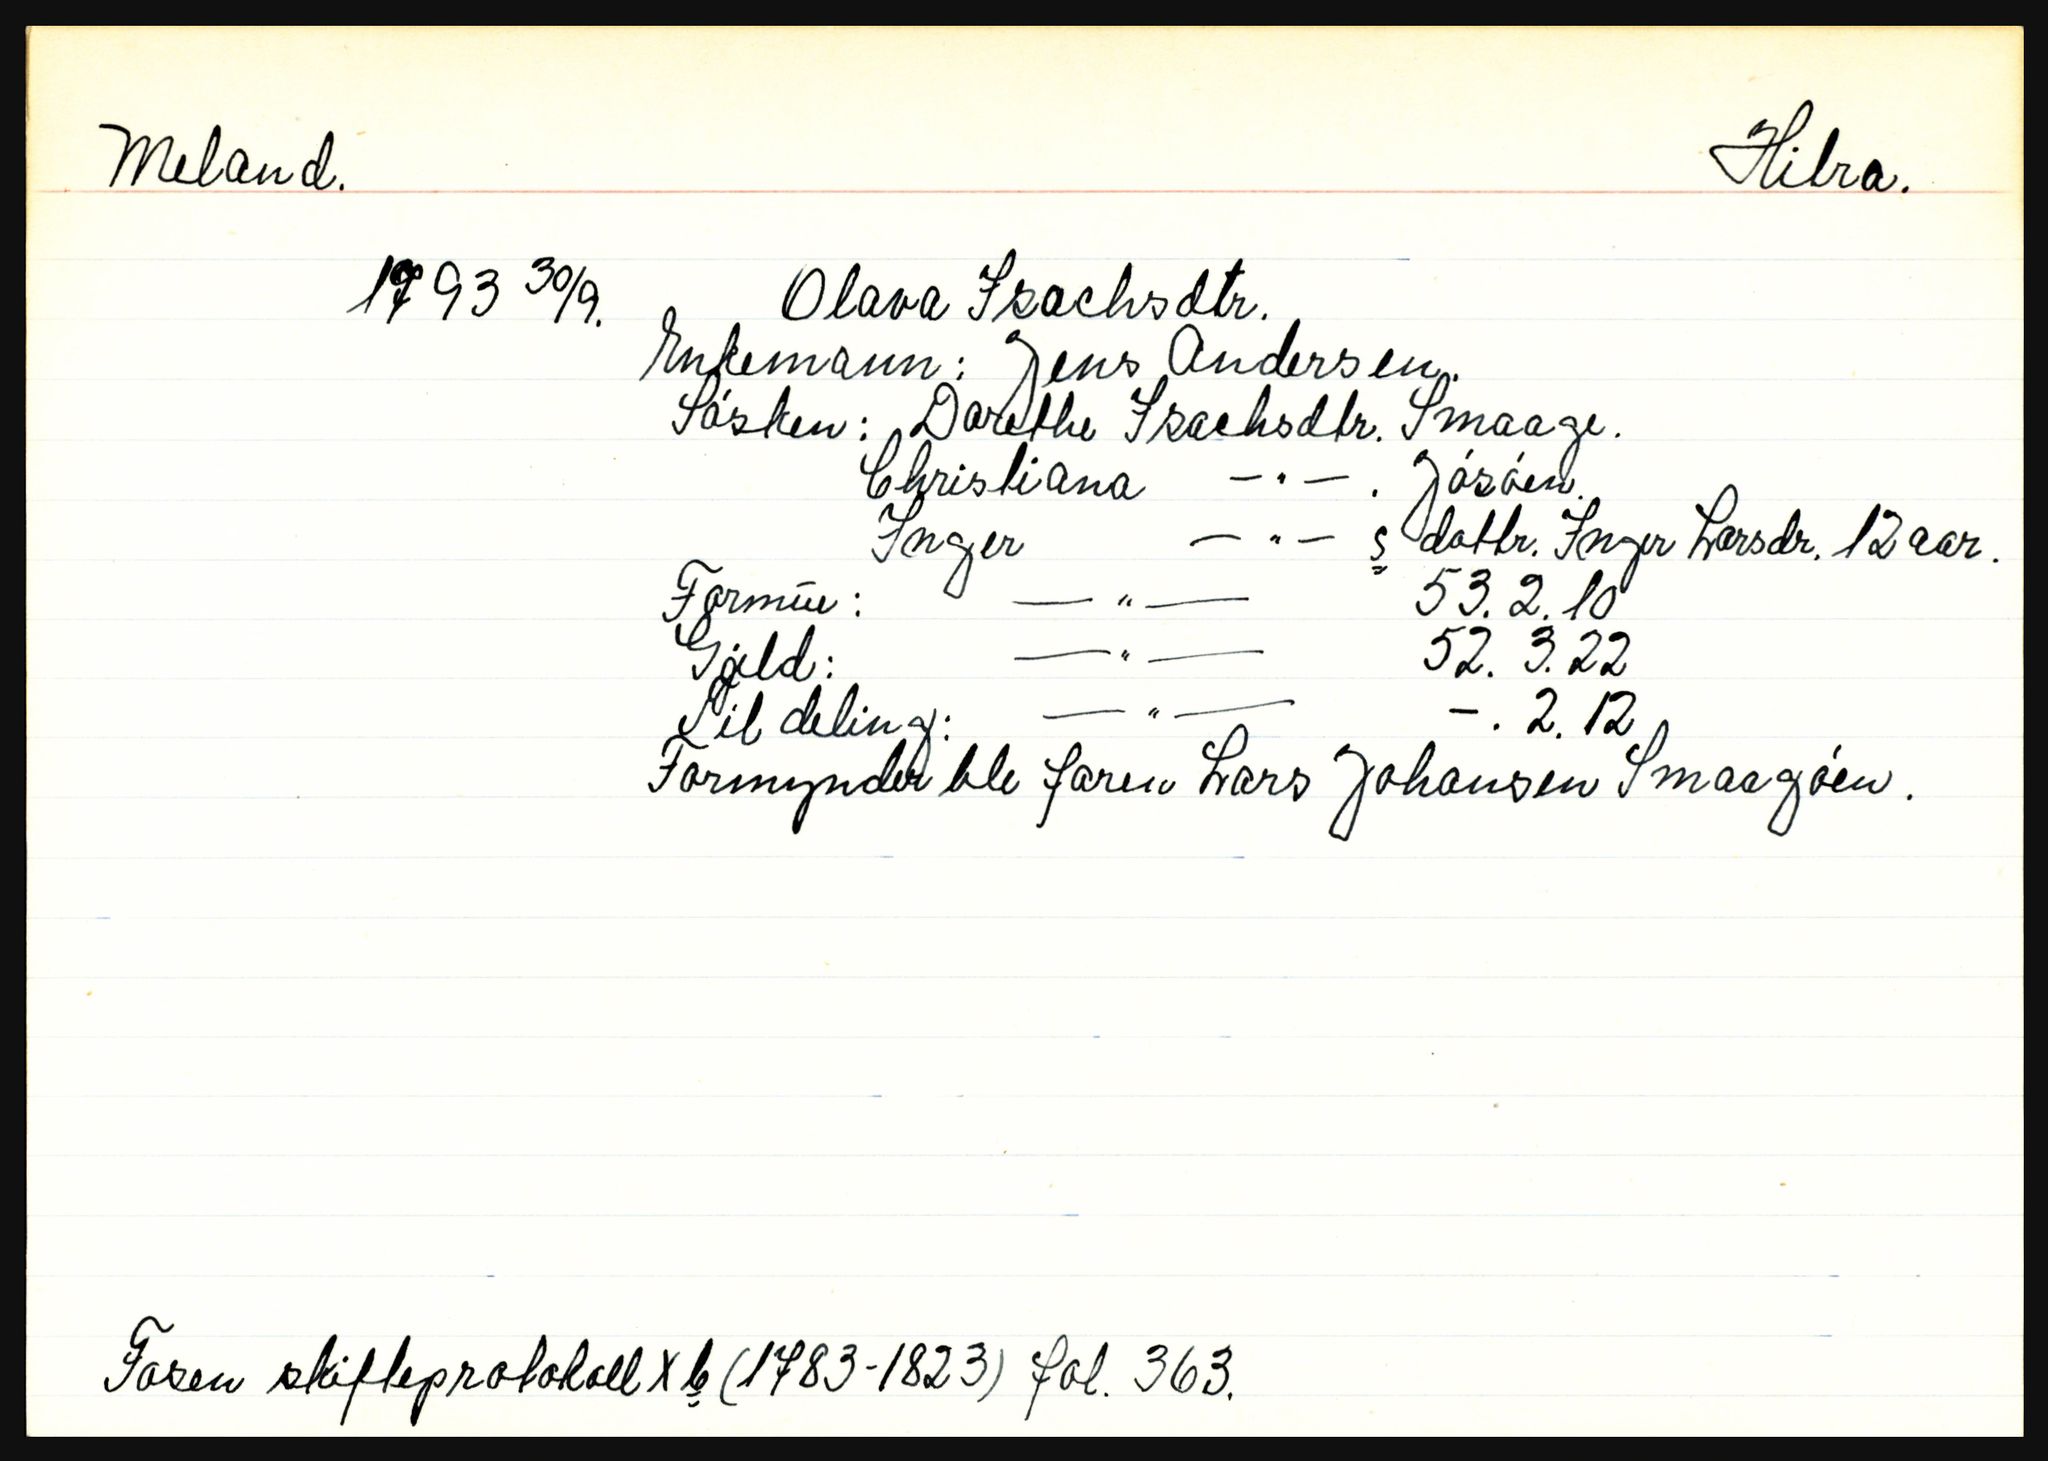 Meland. Hitra.
1793 30/9. Olava Isachsdtr.
Enkemann: Jens Andersen.
Søsken: Dorethe Isachsdtr. Smaage.
Christiana — " — . Jøsøen.
Inger — " — s dottr. Inger Larsdr. 12 aar.
Formue: — " — 53. 2. 10
Gjeld: — " — 52. 3. 22
Til deling: — " — -. 2. 12
Formynder ble faren Lars Johansen Smaagøen.
Fosen skifteprotokoll X b (1783-1823) fol. 363.